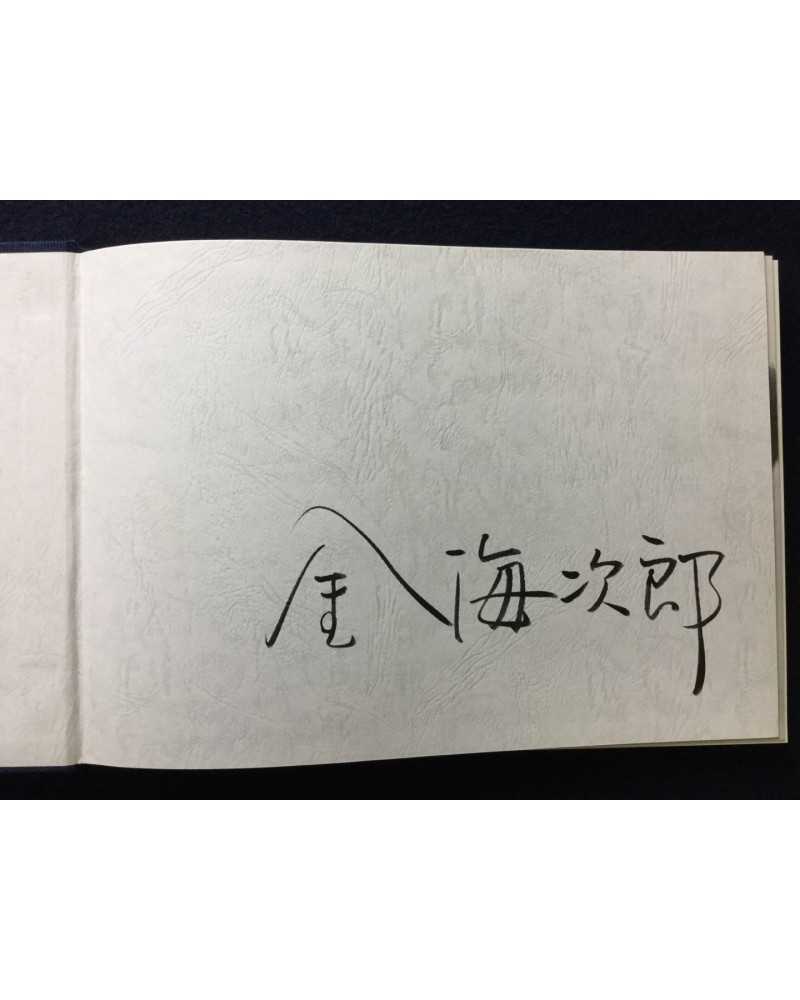 金海次郎